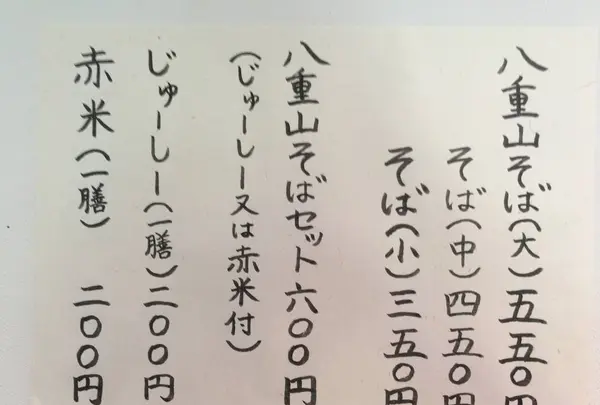 八重山そば(大)五五〇円
そば(中)四五〇円
そば(小)三五〇円
八重山そばセット六〇〇円
(じゅーしー又は赤米付)
じゅーしー(一膳)二〇〇円
赤米(一膳)二〇〇円